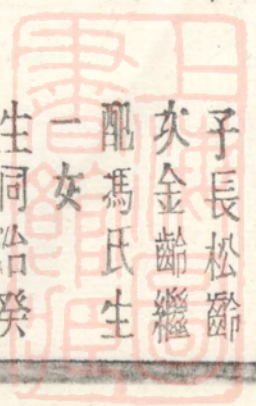 子長松齡
次金齡繼
配馮氏生
一女
生同治癸